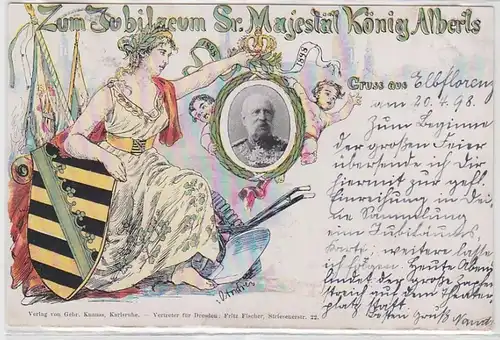 Zum Jubilaeum Sr. Majestät König Alberts
1898
Gruss aus Elbflorenz
am 20.4.98.
Zum Beginne
der großen Feier
übersende ich Dir
hiermit zur gefl.
Einreihung in Dei-
ne Sammlung
eine Jubiläums-
karte, weitere lasse
ich folgen. Heute Aben
findet der große Zapfen-
streich auf dem Theater-
platz statt
Besten Gruß
Verlag von Gebr. Kumms, Karlsruhe. — Vertreter für Dresden: Fritz Fischer, Striesenerstr. 22.